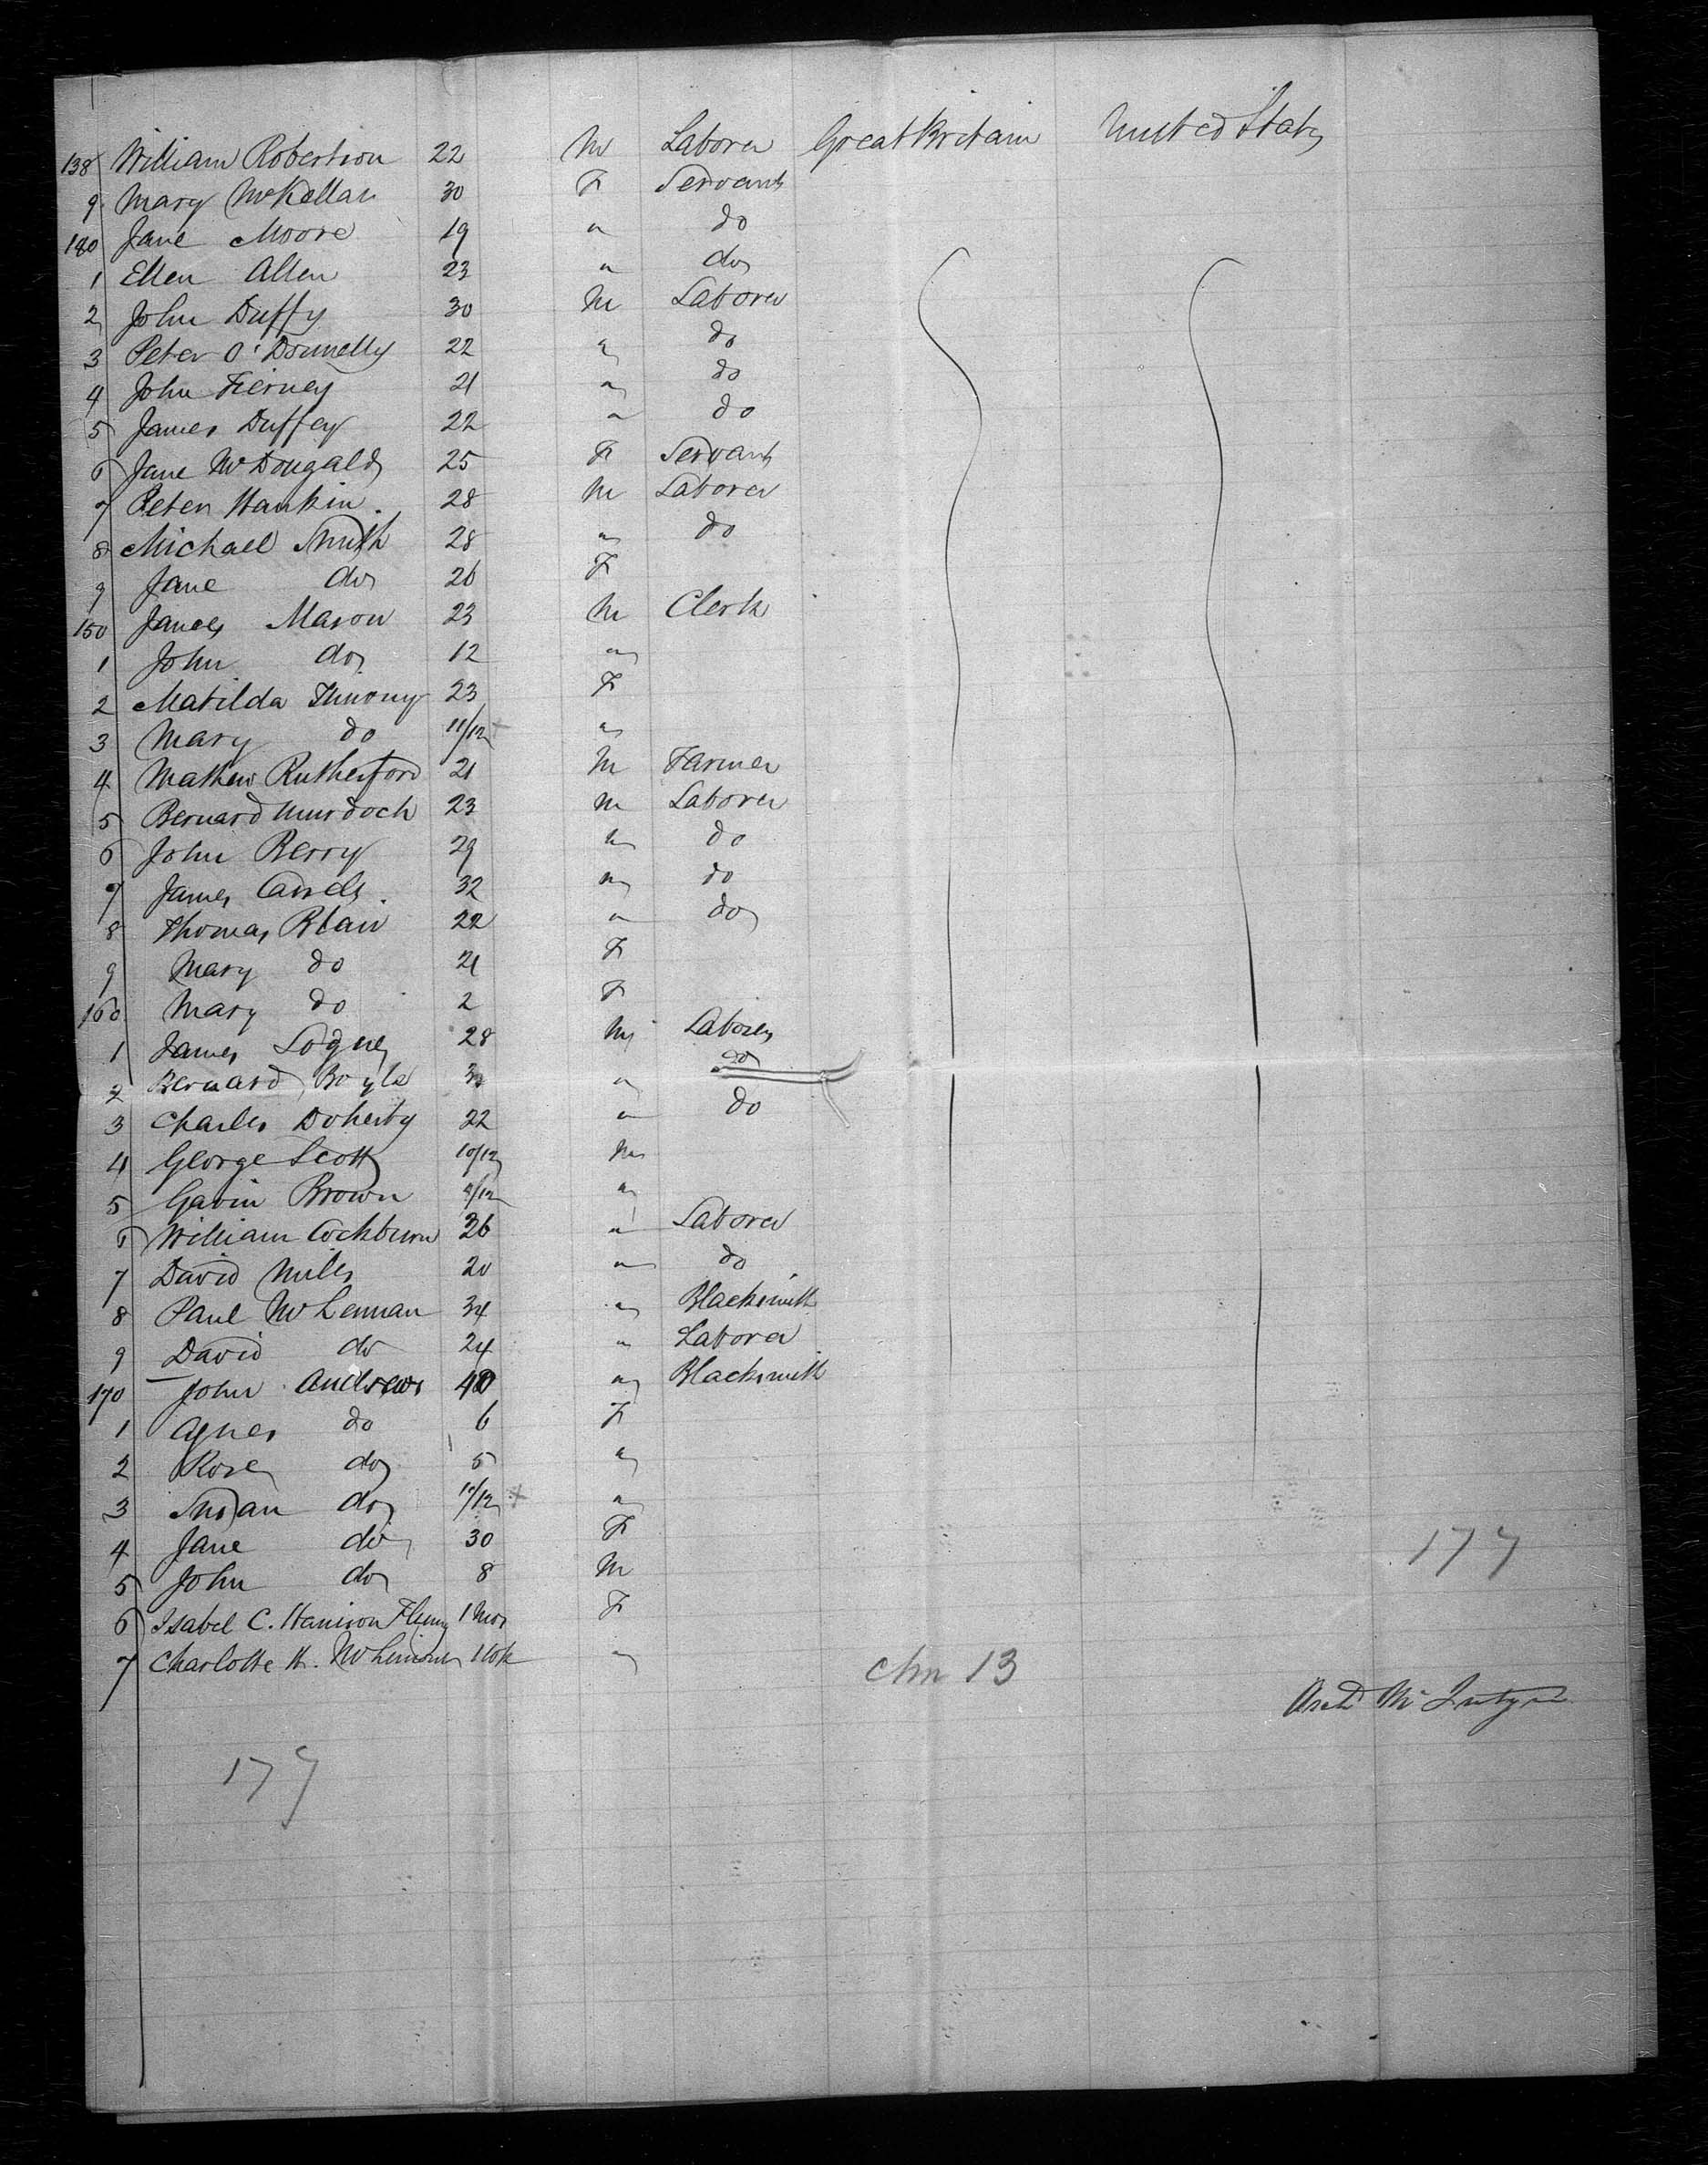 138 William Robertson 22 M Laborer Great Britain United States
9 Mary McKellar 30 F Servant
140 Jane Moore 19 " do
1 Ellen Allen 23 " do
2 John Duffy 30 M Laborer
3 Peter O'Donnelly 22 " do
4 John Tierney 21 " do
5 James Duffey 22 " do
6 Jane McDougald 25 F Servant
7 Peter Hankin 28 M Laborer
8 Michael Smith 28 " do
9 Jane do 26 F
150 James Mason 23 M Clerk
1 John do 12 "
2 Matilda 23 F
3 Mary do 11/12 "
4 Mathew Rutherford 21 M Farmer
5 Bernard Murdoch 23 M Laborer
6 John Berry 29 " do
7 James 32 " do
8 Thomas Blair 22 " do
9 Mary do 21 F
160 Mary do 2 F
1 James Logue 28 M Laborer
2 Bernard Boyle " do
3 Charles Doherty 22 " do
4 George Scott 10/12 M
5 Gavin Brown "
6 William Cockburn 26 " Laborer
7 David Miles 20 " do
8 Paul McLennan 34 " Blacksmith
9 David do 24 " Laborer
170 John Andrews 40 " Blacksmith
1 Agnes do 6 F
2 Rose do 5 "
3 Susan do "
4 Jane do 30 F
5 John do 8 M
6 Isabel C. 1 Mos F
7 Charlotte H. 1 Wk "
177
chn 13
Archd McIntyre
177